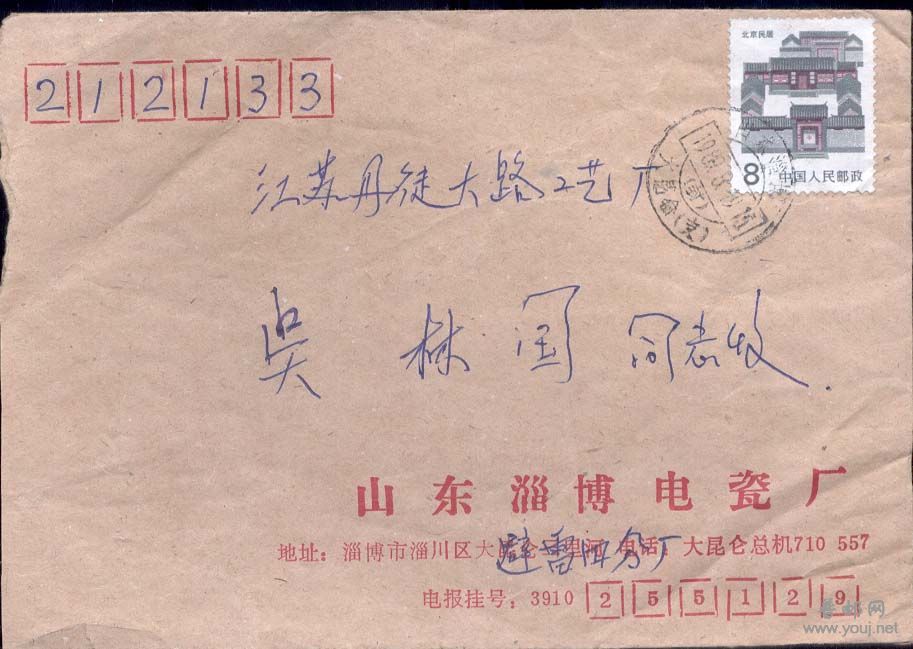 212133
北京民居
8 中国人民邮政
江苏丹徒大路工艺厂
吴林国同志收.
山东淄博电瓷厂
避雷四分厂
地址: 淄博市淄川区大昆仑 星河 电话: 大昆仑总机710 557
电报挂号: 3910 255129
普邮网
www.youj.net